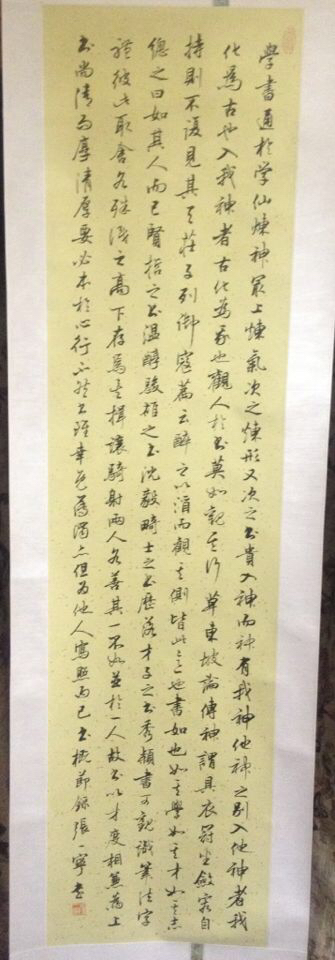 學書通於学仙煉神最上煉氣次之煉形又次之書貴入神而神有我神他神之别入他神者我
化爲古也入我神者古化为我也觀人於書莫如觀其行草東坡論傳神謂具衣冠坐斂容自
持則不復見其天莊子列御寇篇云醉之以酒而觀其側皆此意也書如也如其學如其才如其志
總之曰如其人而已賢哲之書温醇駿雄之書沈毅畸士之書歷落才子之書秀穎書可觀識筆法字
體彼此取舍各殊識之高下存焉矣揖讓騎射兩人各善其一不如並於一人故書以才度相兼爲上
書尚清而厚清厚要必本於心行不然書雖幸免薄濁亦但为他人寫照而已書概節録張一寧書